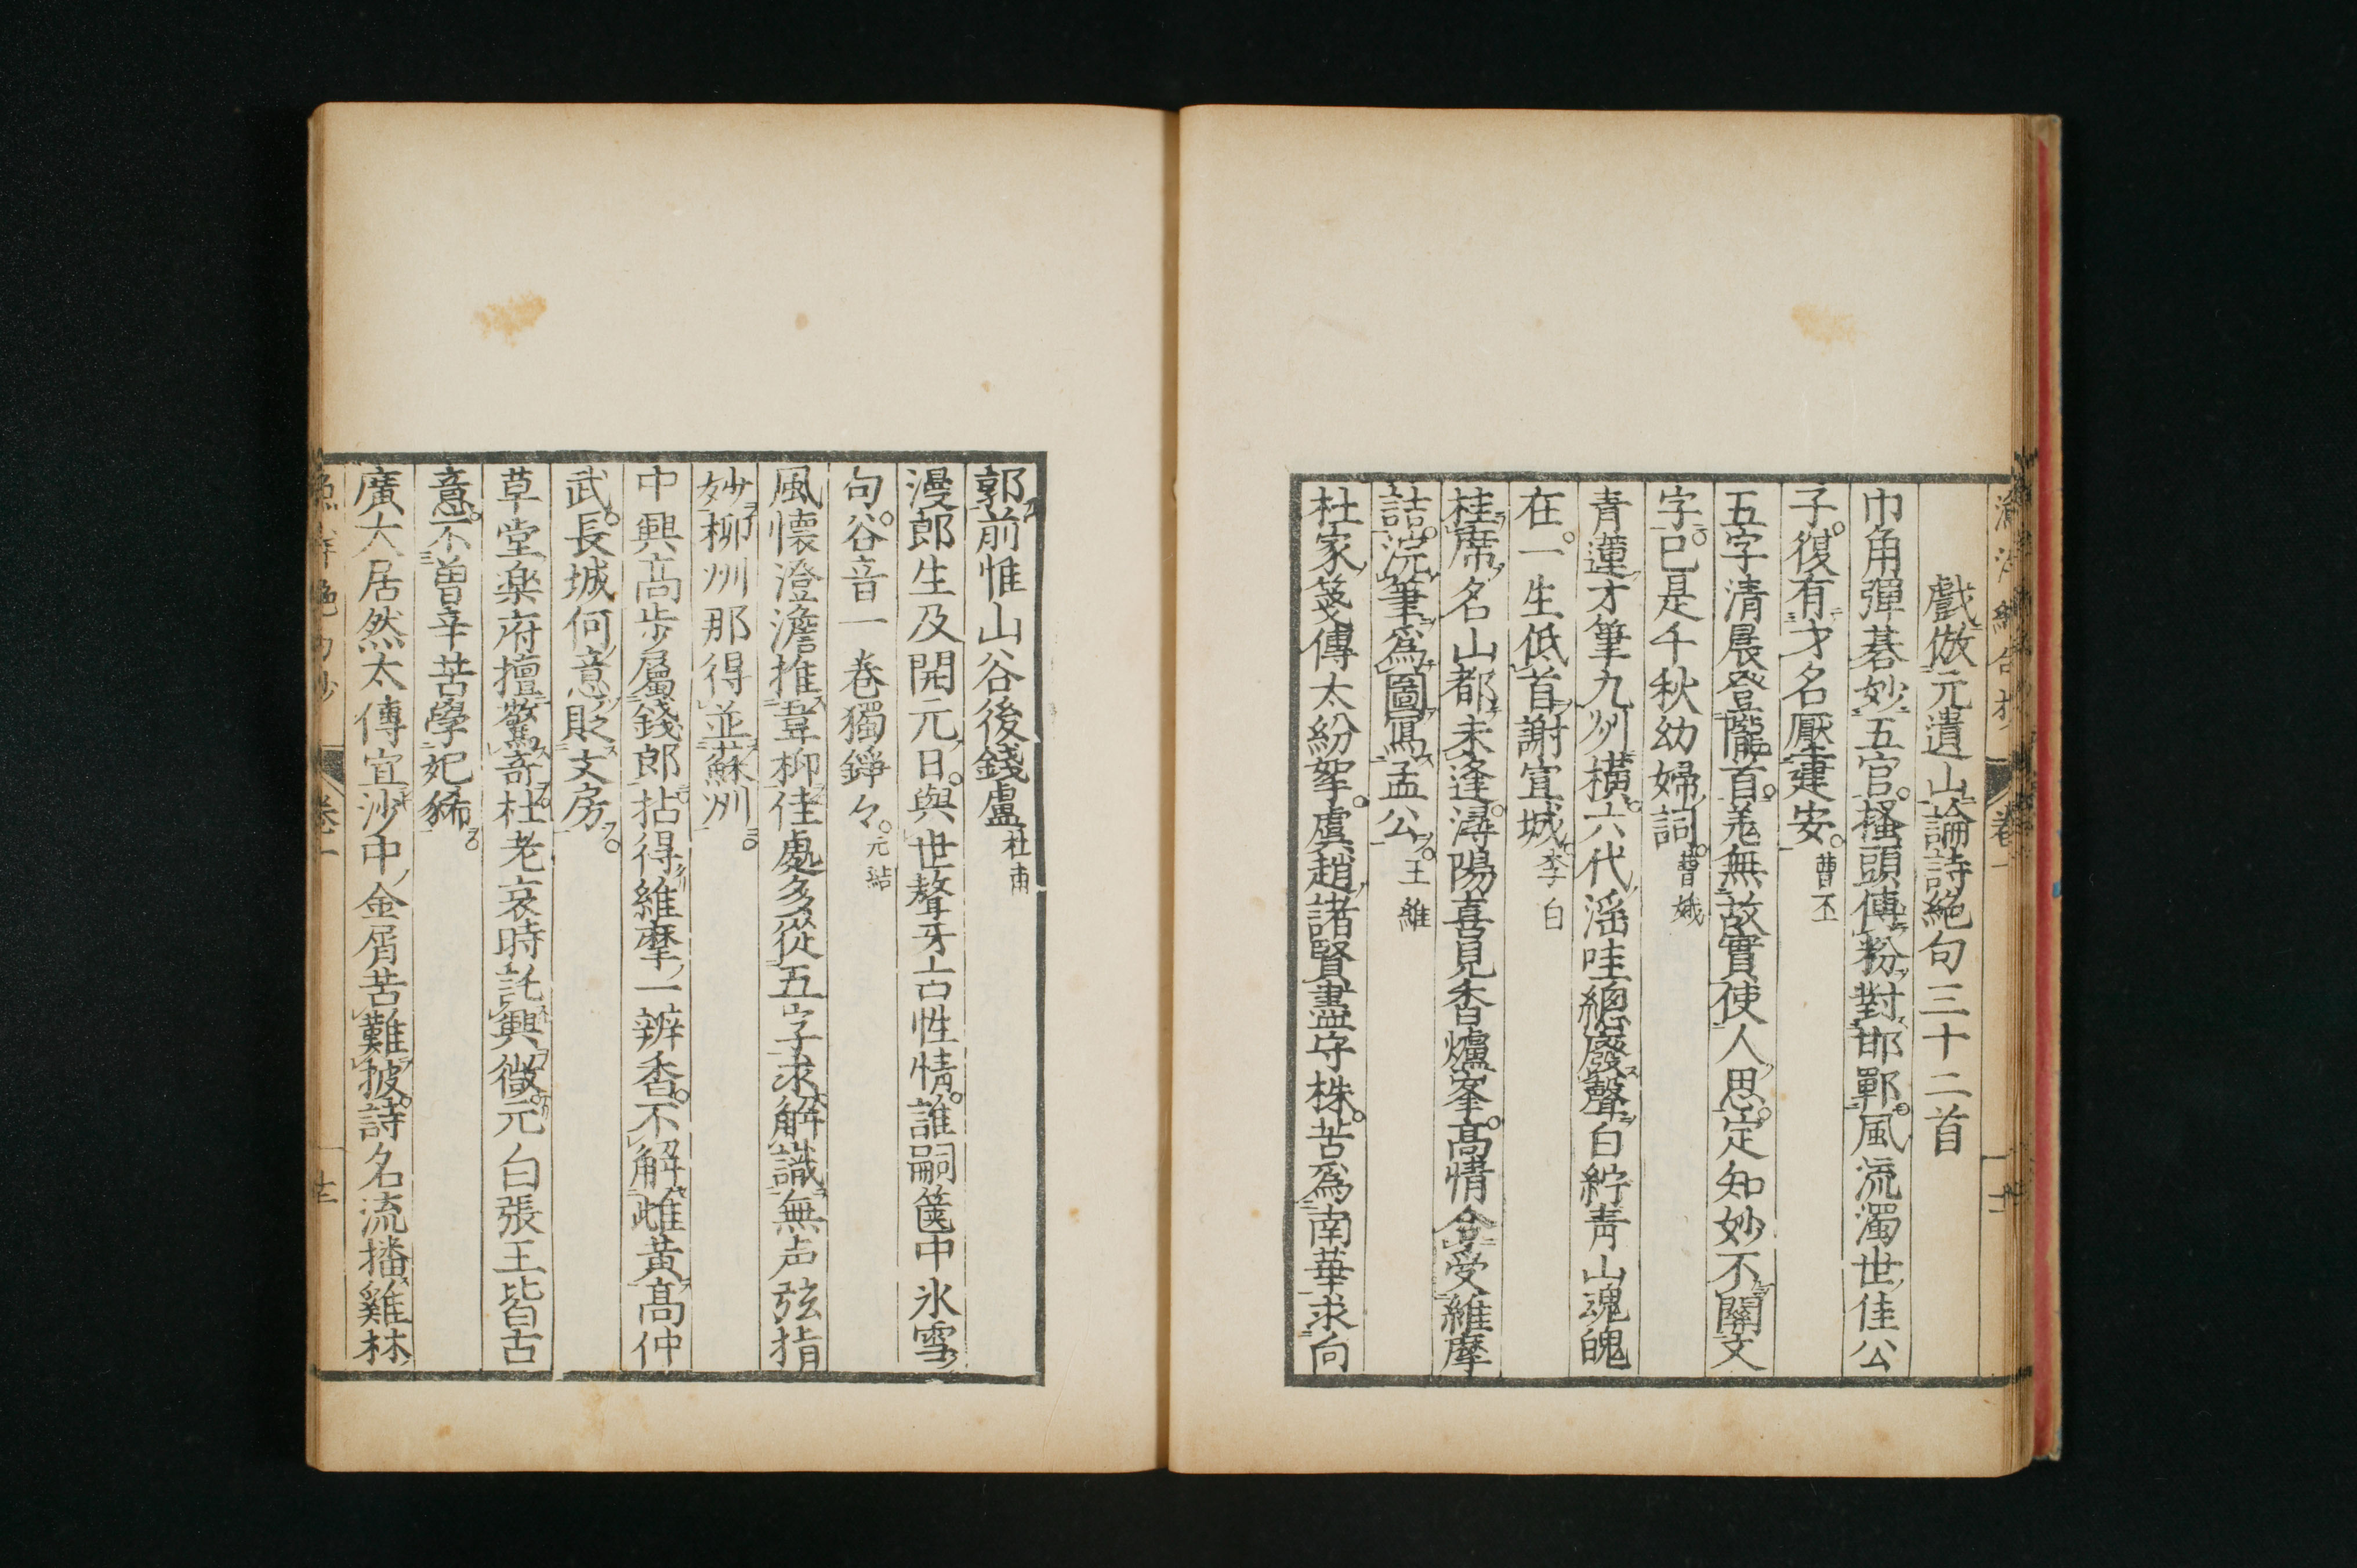 戲倣元遺山論詩絕句三十二首
巾角彈碁妙五官。搔頭傅粉對邯鄲。風流濁世佳公
子。復有才名壓建安。曹丕
五字清晨登隴首。羌無故實使人思。定知妙不關文
字。已是千秋幼婦詞。曹娥
青蓮才筆九州橫。六代淫哇總廢聲。白紵青山魂魄
在。一生低首謝宣城。李白
桂席名山都未逢。潯陽喜見香爐峯。高情合受維摩
詰。浣筆爲圖寫孟公。王維
杜家箋傳太紛挐。虞趙諸賢盡守株。苦爲南華求向
郭。前惟山谷後錢盧。杜甫
漫郎生及開元日。與世聱牙古性情。誰嗣篋中氷雪
句。谷音一巻獨錚々。元結
風懷澄澹推韋柳。佳處多從五字求。解識無声弦指
妙。柳州那得並蘇州。
中興高步屬錢郎。拈得維摩一瓣香。不解雌黃高仲
武。長城何意貶文房。
草堂楽府擅驚奇。杜老哀時託興微。元白張王皆古
意。不曽辛苦學妃豨。
廣大居然太傅宜。沙中金屑苦難披。詩名流播雞林
卷一